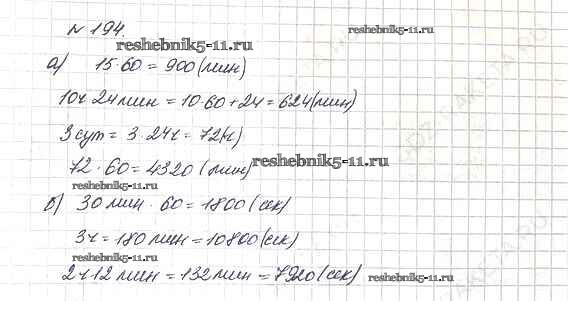 № 194.
reshebnik5-11.ru
reshebnik5-11.ru
а) 15·60 = 900 (мин)
10ч 24 мин = 10·60+24 = 624 (мин)
3 сут = 3·24ч = 72(ч)
72·60 = 4320 (мин)
reshebnik5-11.ru
reshebnik5-11.ru
б) 30 мин · 60 = 1800 (сек)
3ч = 180 мин = 10800 (сек)
reshebnik5-11.ru
2ч 12 мин = 132 мин = 7920 (сек)
reshebnik5-11.ru